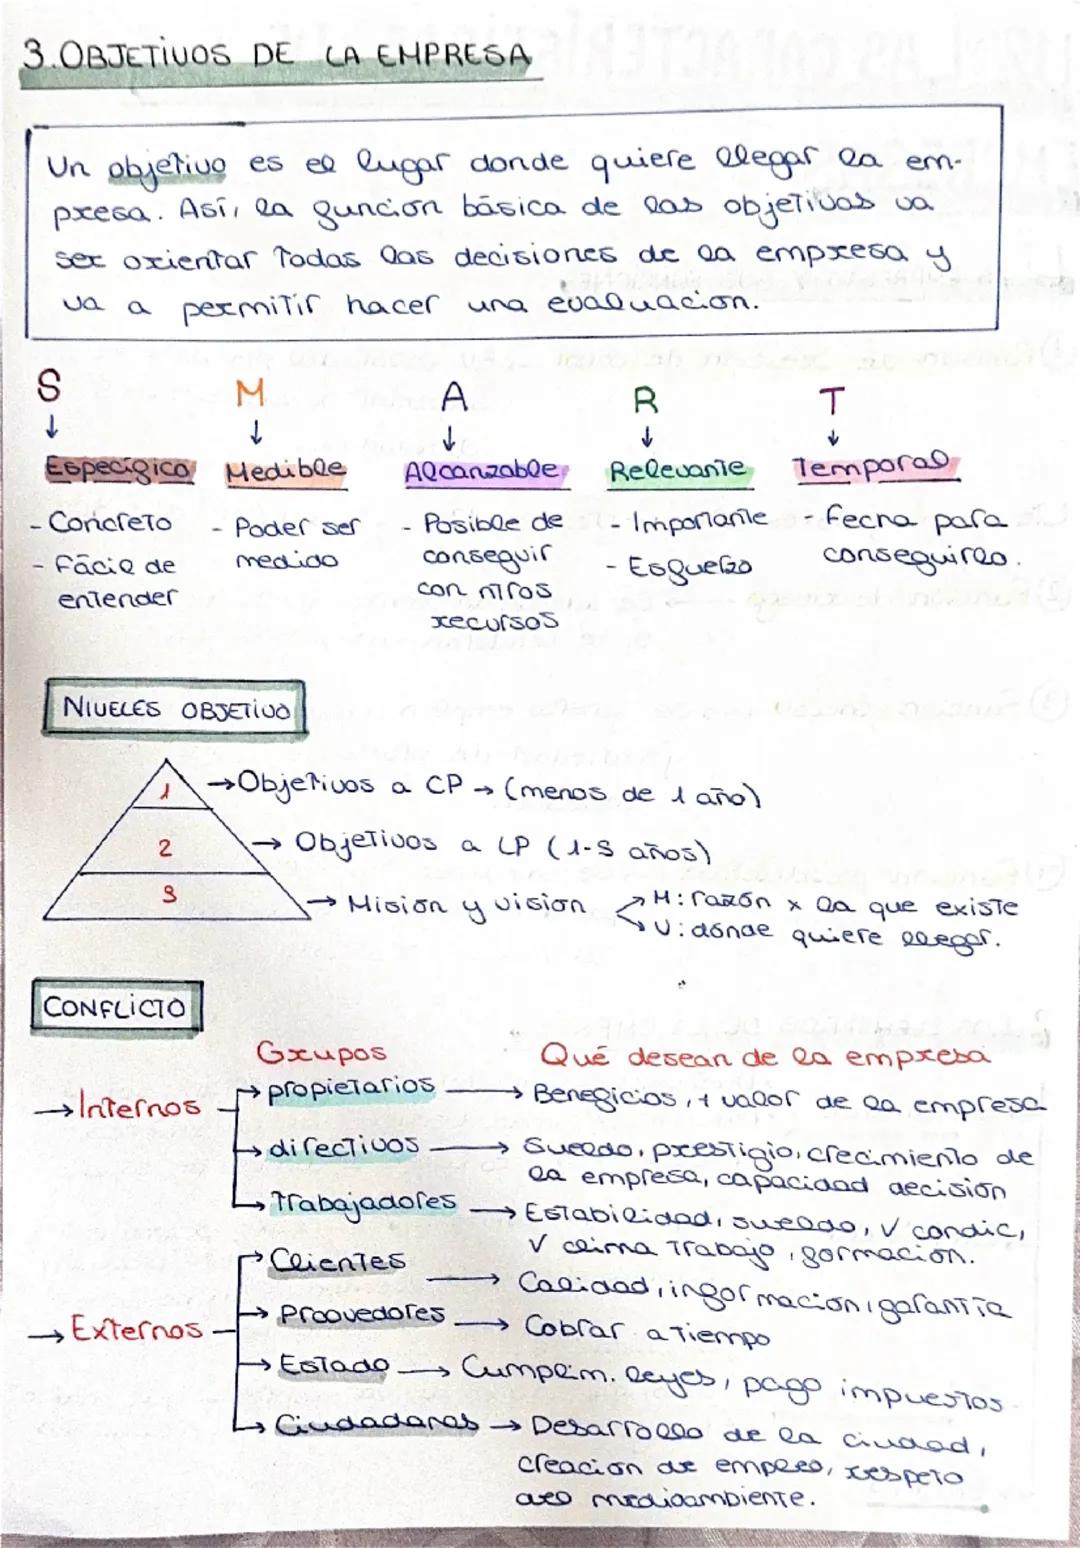 3. OBJETIVOS DE LA EMPRESA
Un objetivo es el lugar donde quiere llegar la em-
presa. Así, la función básica de los objetivos va
ser orientar todas las decisiones de la empresa y
va a permitir hacer una evaluación.
S M A R T
Específico Medible Alcanzable Relevante Temporal
- Concreto
- Fácil de
entender
- Poder ser
medido
- Posible de
conseguir
con ntros
recursos
- Importante
- Esfuerzo
Fecha para
conseguirlo.
NIVELES OBJETIVO
1 → Objetivos a CP → (menos de 1 año)
2 → Objetivos a LP (1-5 años)
3 → Misión y visión
M: razón x la que existe
V: dónde quiere llegar.
CONFLICTO
Grupos Qué desean de la empresa
→ Internos
→ propietarios → Beneficios, + valor de la empresa
→ directivos → Sueldo, prestigio, crecimiento de
la empresa, capacidad decisión
→ Trabajadores → Estabilidad, sueldo, V condic,
V clima Trabajo, formación.
→ Externos
→ Clientes → Calidad, información, garantía
→ Proovedores → Cobrar a tiempo
→ Estado → Cumplim. leyes, pago impuestos
→ Ciudadanos → Desarrollo de la ciudad,
creación de empleo, respeto
al medioambiente.